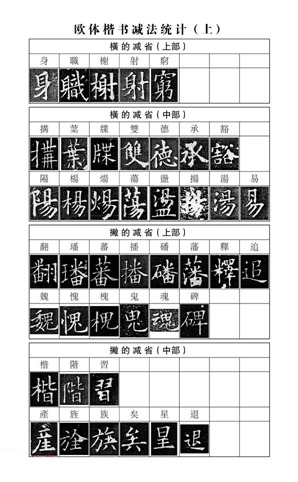 欧体楷书减法统计（上）
横的减省（上部）
身 職 榭 射 窮
身 職 榭 射 窮
横的减省（中部）
搆 葉 牒 雙 德 承 豁
搆 葉 牒 雙 德 承 豁
陽 楊 煬 蕩 盪 揚 湯 易
陽 楊 煬 蕩 盪 揚 湯 易
撇的减省（上部）
翻 璠 蕃 播 磻 藩 釋 追
翻 璠 蕃 播 磻 藩 釋 追
魏 愧 槐 鬼 魂 碑
魏 愧 槐 鬼 魂 碑
撇的减省（中部）
楷 階 習
楷 階 習
產 旌 族 矣 皇 退
產 旌 族 矣 皇 退